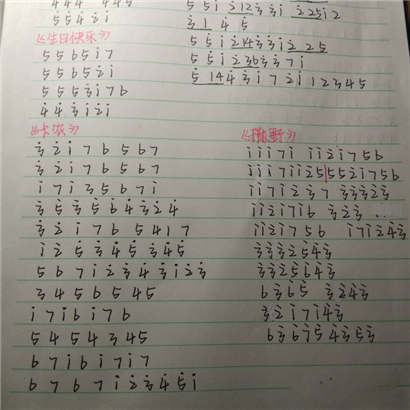 5 5 4 2̇ i
《生日快乐》
5 5 6 5 i 7
5 5 6 5 2̇ i
5 5 5̇ 3̇ i 7 6
4̇ 4̇ 3̇ i 2̇ i
《卡农》
3̇ 2̇ i 7 6 5 6 7
3̇ 2̇ i 7 6 5 6 7
i 7 i 3 5 6 7 i
3̇ 5̇ 3̇ 5̇ 6̇ 4̇ 3̇ 2̇ 4̇
3̇ 2̇ i 7 6 5 4 1 7
i 2̇ 5̇ 3̇ 4̇ 5̇ 3̇ 4̇ 5̇
5 6 7 i 2̇ 3̇ 4̇ 3̇ i 2̇ 3̇
3 4 5 6 5 4 5
i 7 i 6 i 7 6
5 4 5 4 3 4 5
6 7 i 6 i 7 i 7
6 7 6 7 i 2̇ 3̇ 4̇ 5̇ i
3̇ 1 4 5
5 5 i 2̇ 3̇ 6 3̇ 3̇ 7 i
5 1 4 4̇ 3̇ i 7 i 2̇ 1 2 3 4 5
i i i 7 i i i 2̇ i 7 5 6
i i i 7 i i 2̇ 5 5 5 2̇ i 7 5 6
i i 7 i 2̇ 3̇ 7 3̇ 3̇ 3̇ 2̇ 3̇
i i 2̇ i 7 i 6 3̇ 2̇ 3̇ ...
i i 2̇ i 7 5 6 i 7 i 2̇ 4̇ 3̇
3̇ 3̇ 3̇ 2̇ 5̇ 4̇ 3̇
3̇ 3̇ 2̇ 5̇ 6̇ 4̇ 3̇
6 3̇ 6̇ 5̇ 3̇ 2̇ 4̇ 3̇
3̇ 2̇ i 7 i 4̇ 3̇
6 3̇ 6̇ 7̇ 5̇ 4̇ 3̇ 5̇ 3̇